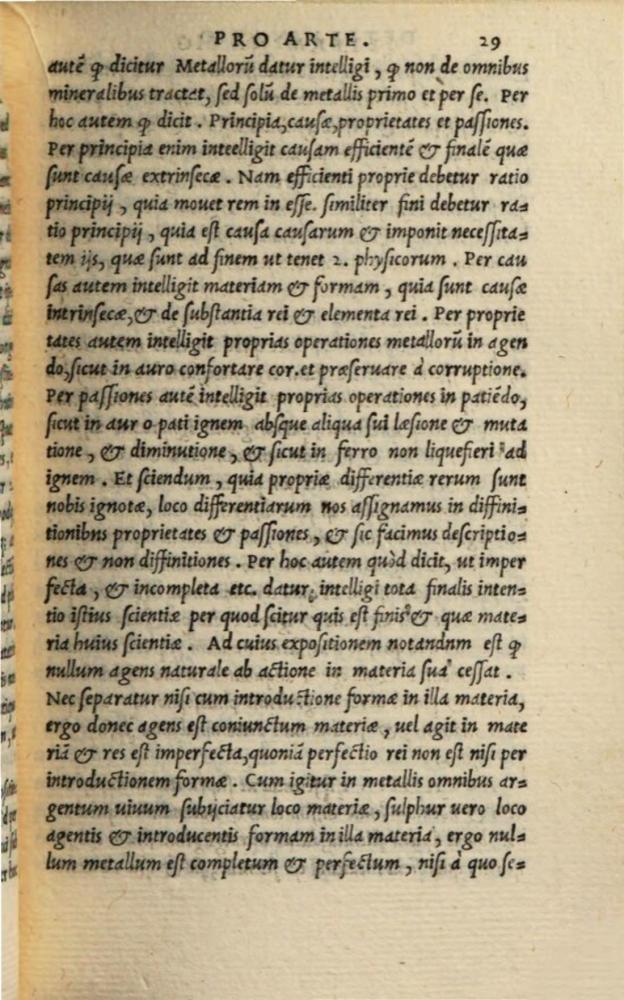 PRO ARTE. 29
autẽ ꝙ dicitur Metallorũ datur intelligi, ꝙ non de omnibus
mineralibus tractat, ſed ſolũ de metallis primo et per ſe. Per
hoc autem ꝙ dicit. Principia, cauſæ, proprietates et paſſiones.
Per principia enim inteelligit cauſam efficientẽ & finalẽ quæ
ſunt cauſæ extrinſecæ. Nam efficienti proprie debetur ratio
principij, quia mouet rem in eſſe. ſimiliter fini debetur ra=
tio principij, quia eſt cauſa cauſarum & imponit neceſſita=
tem ijs, quæ ſunt ad finem ut tenet 2. phyſicorum. Per cau
ſas autem intelligit materiam & formam, quia ſunt cauſæ
intrinſecæ, & de ſubſtantia rei & elementa rei. Per proprie
tates autem intelligit proprias operationes metallorũ in agen
do, ſicut in auro confortare cor. et præſeruare à corruptione.
Per paſſiones autẽ intelligit proprias operationes in patiẽdo,
ſicut in aur o pati ignem abſque aliqua ſui læſione & muta
tione, & diminutione, & ſicut in ferro non liquefieri ad
ignem. Et ſciendum, quia propriæ differentiæ rerum ſunt
nobis ignotæ, loco differentiarum nos aſſignamus in diffini=
tionibns proprietates & paſſiones, & ſic facimus deſcriptio=
nes & non diffinitiones. Per hoc autem quòd dicit, ut imper
fecta, & incompleta etc. datur, intelligi tota finalis inten=
tio iſtius ſcientiæ per quod ſcitur quis eſt finis & quæ mate=
ria huius ſcientiæ. Ad cuius expoſitionem notandnm eſt ꝙ
nullum agens naturale ab actione in materia ſua ceſſat.
Nec ſeparatur niſi cum introductione formæ in illa materia,
ergo donec agens eſt coniunctum materiæ, uel agit in mate
riã & res eſt imperfecta, quoniã perfectio rei non eſt niſi per
introductionem formæ. Cum igitur in metallis omnibus ar=
gentum uiuum ſubijciatur loco materiæ, ſulphur uero loco
agentis & introducentis formam in illa materia, ergo nul=
lum metallum eſt completum & perfectum, niſi à quo ſe=